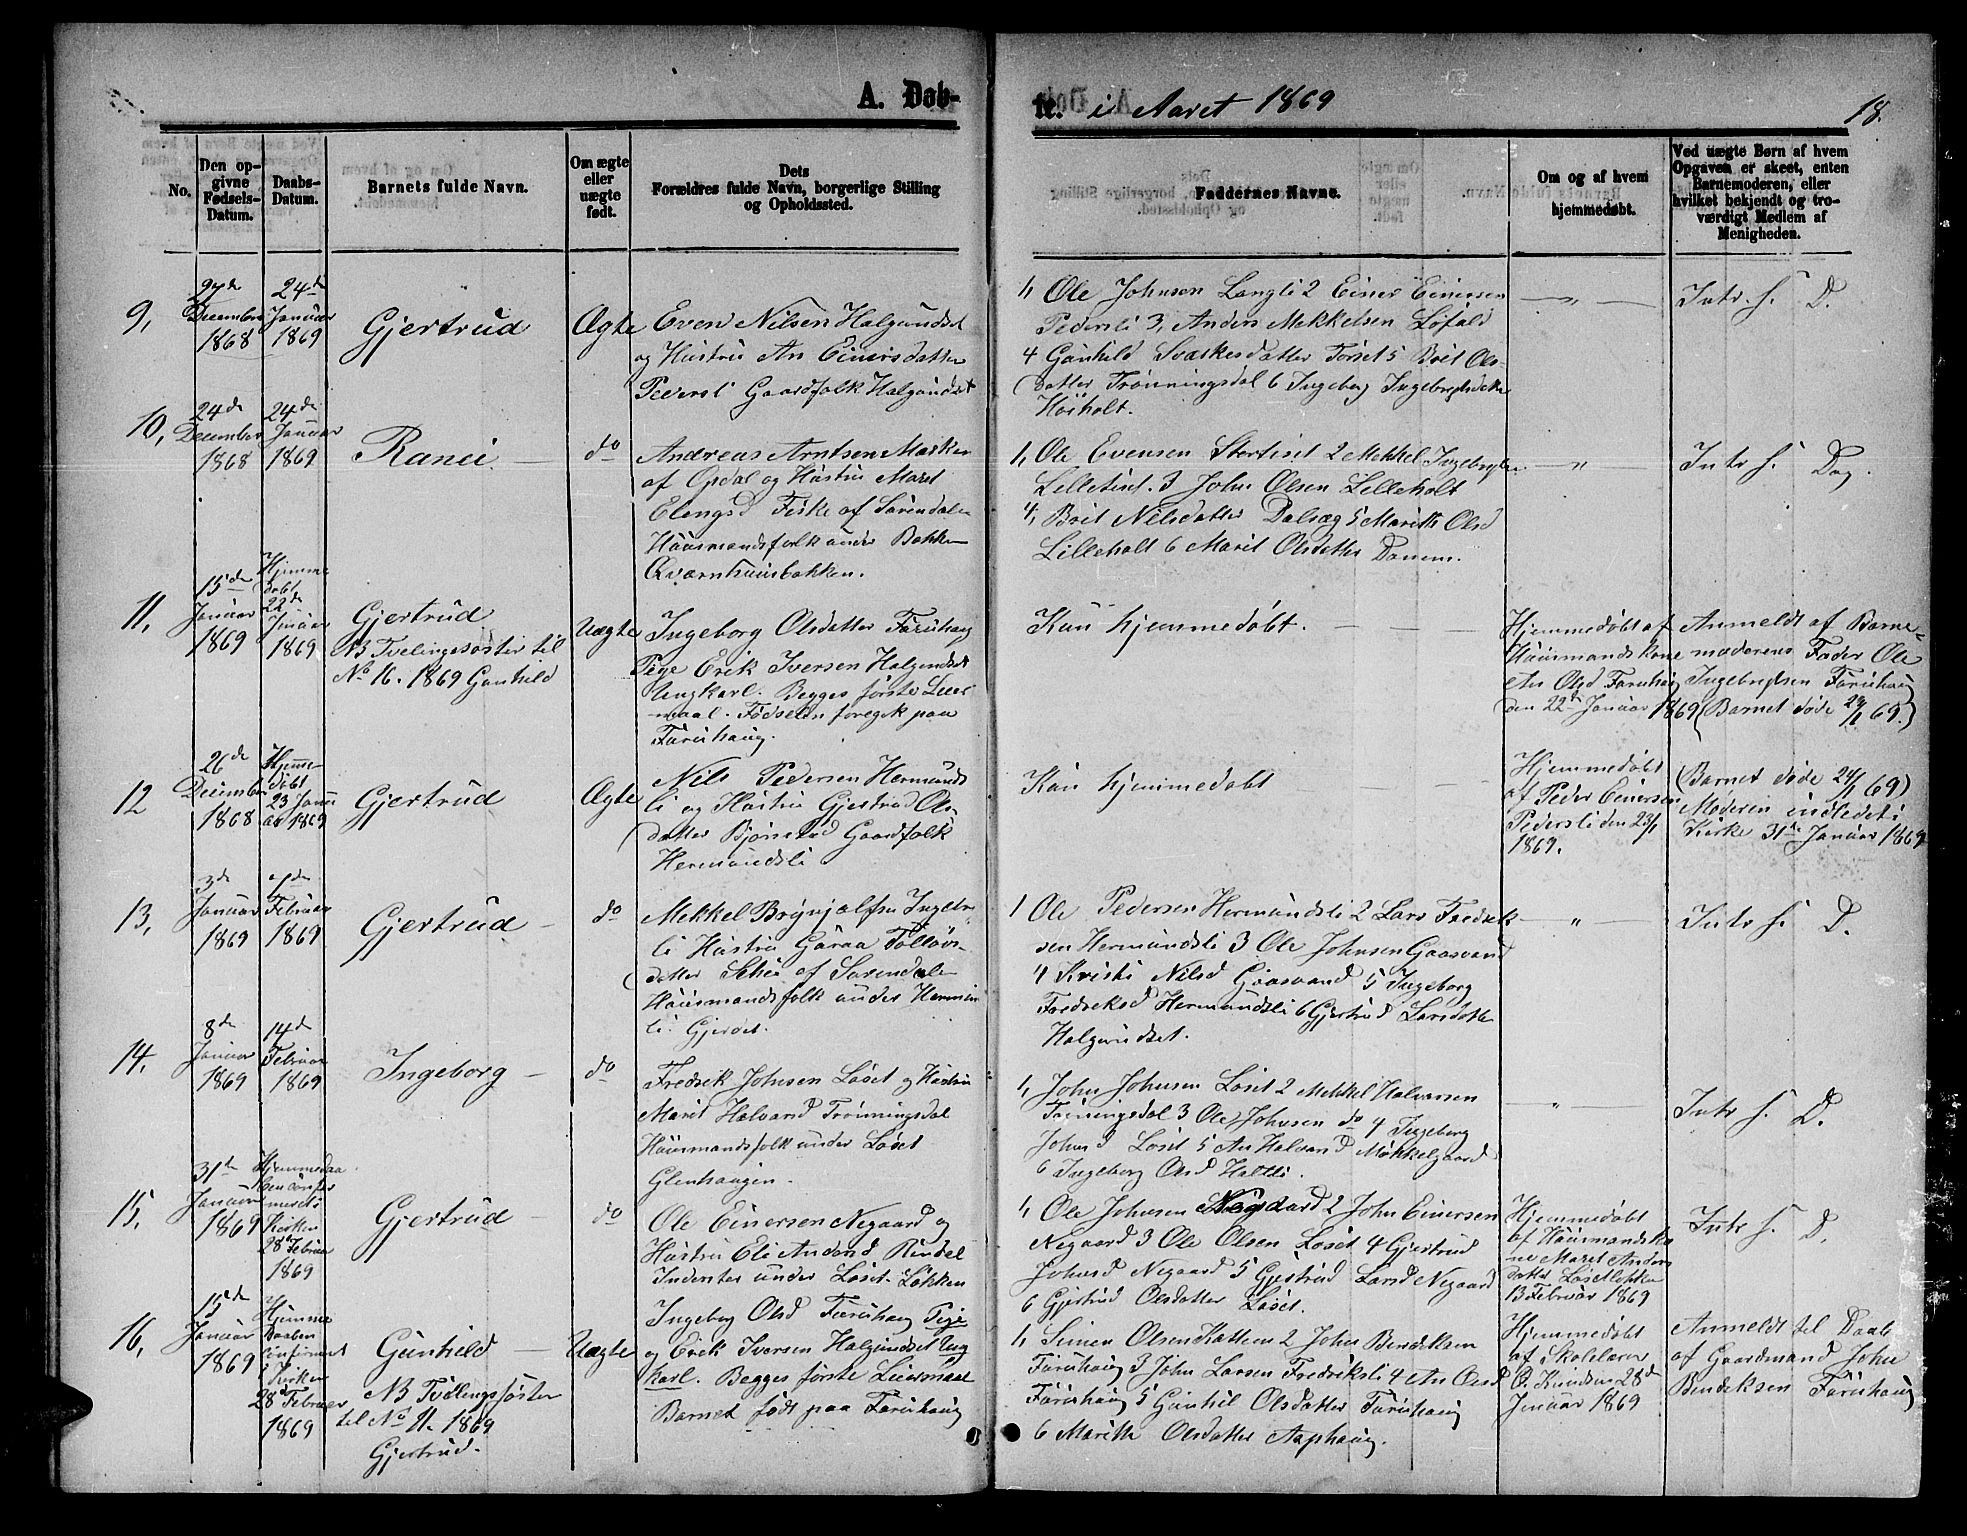 A. Døb-
te. i Aaret 1869
18.
No.
Den op-
givne
Fødsels-
Datum.
Daabs-
Datum.
Barnets fulde Navn.
Om ægte
eller
uægte
født.
Dets
Forældres fulde Navn, borgerlige Stilling
og Opholdssted.
Faddernes Navne.
Om og af hvem
hjemmedøbt.
Ved uægte Børn af hvem
Opgaven er skeet, enten
Barnemoderen, eller
hvilket bekjendt og tro-
værdigt Medlem af
Menigheden.
9,
27de
Decembr
1868
24de
Januar
1869
Gjertrud
Ægte
Even Nilsen Halgundset
og Hustru An Einersdatter
Pedersli Gaardfolk Halgundset
1, Ole Johnsen Langli 2 Einer Einersen
Pedersli 3, Anders Mekkelsen Løfald
4 Gunhild Sværkesdatter Torset 5 Brit Ols-
datter Trønningsdal 6 Ingeborg Ingebregtsdatter
Høiholt.
— " —
Intr. h. D.
10,
24de
December
1868
24de
Januar
1869
Ranei
do
Andreas Arntsen Marken
af Opdal og Hustru Maret
Elengsd Fiske af Surendalen
Huusmandsfolk under Bakken
Qværnhuusbakken.
1, Ole Evensen Stortiset 2 Mekkel Ingebregtsen
Lilletiset. 3 John Olsen Lilleholt
4, Brit Nilsdatter Dalsæg 5 Marith Olsd
Lilleholt 6 Marit Olsdatter Donem.
— " —
Intr h. Dag.
11,
15de
Januar
1869
Hjemme
døbt
22de
Januar
1869
Gjertrud
NB Tvelingesøster til
No 16. 1869 Gunhild
Uægte
Ingeborg Olsdatter Faruhaug
Pige Erik Iversen Halgundset
Ungkarl. Begges første Leier
-maal. Fødselen foregik paa
Faruhaug.
Kun hjemmedøbt.
Hjemmedøbt af
Huusmandskone
An Olsd Faruhaug
den 22de Januar 1869
Anmeldt af Barne-
moderens Fader Ole
Ingebregtsen Faruhaug
(Barnet døde 24/1 69.)
12
26de
December
1868
Hjemme
døbt
23 Janu
ar 1869
Gjertrud
Ægte
Nils Pedersen Hermunds
li og Hustru Gjertrud Ols-
datter Bjørnstad Gaardfolk
Hermundsli
Kun hjemmedøbt
Hjemmedøbt
af Peder Einersen
Pedersli den 23/1
1869.
(Barnet døde 24/1 69)
Moderen indledet i
Kirke 31te Januar 1869
13,
3de
Januar
1869
7de
Februar
1869
Gjertrud
do
Mekkel Brynjolfsen Ingebr-
li Hustru Guraa Tolløvs-
datter Schei af Surendalen
Huusmandsfolk under Hermun
li. Gjerdet.
1 Ole Pedersen Hermundsli 2 Lars Fredrik
sen Hermundsli 3 Ole Johnsen Gaasvand
4 Kristi Nilsd Gaasvand 5 Ingeborg
Fredriksd Hermundsli 6 Gjertrud Larsdatter
Halgundset.
— " —
Intr h. D.
14,
8de
Januar
1869
14de
Februar
1869
Ingeborg
do
Fredrik Johnsen Løset og Hustru
Marit Halvarsd Trønningsdal
Huusmandsfolk under Løset
Glenhaugen.
1, John Johnsen Løset 2 Mekkel Halvarsen
Trønningsdal 3 Ole Johnsen do 4 Ingeborg
Johnsd Løset 5 An Halvarsd Møkkelgaard
6 Ingeborg Olsd Haltli.
— " —
Intr h. D.
15,
31te
Januar
1869
Hjemmedaa
ben confir
meret i
Kirken
28 Februar
1869
Gjertrud
do
Ole Einersen Negaard og
Hustru Eli Andersd Rindal
Inderster under Løset. Løkken
1, Ole Johnsen Negaard 2 John Einersen
Negaard 3 Ole Olsen Løset 4 Gjertrud
Johnsd Negaard 5 Gjertrud Larsd Negaard
6 Gjertrud Olsdatter Løset.
Hjemmedøbt
af Huusmandsko
ne Maret Anders
datter Løsetløkken
13 Februar 1869
Intr h. D.
16,
15de
Januar
1869
Hjemme
Daaben
confirmeret
i Kirken
28 Februar
1869
Gunhild
NB Tvillingsøster
til No 11. 1869
Gjertrud.
Uægte
Ingeborg Olsd Faruhaug Pige
og Erik Iversen Halgundset Ung
karl. Begges første Leiermaal
Barnet født paa Faruhaug
1, Simen Olsen Kattem 2 John Bendiksen
Faruhaug 3 John Larsen Fredriksli 4 An Olsd
Faruhaug 5 Gunhil Olsdatter Faruhaug
6 Marith Olsdatter Aaphaug.
Hjemmedøbt
af Skolelærer
O. Knudsen 28de
Januar 1869
Anmeldt til Daab
af Gaardmand John
Bendiksen Faruhaug